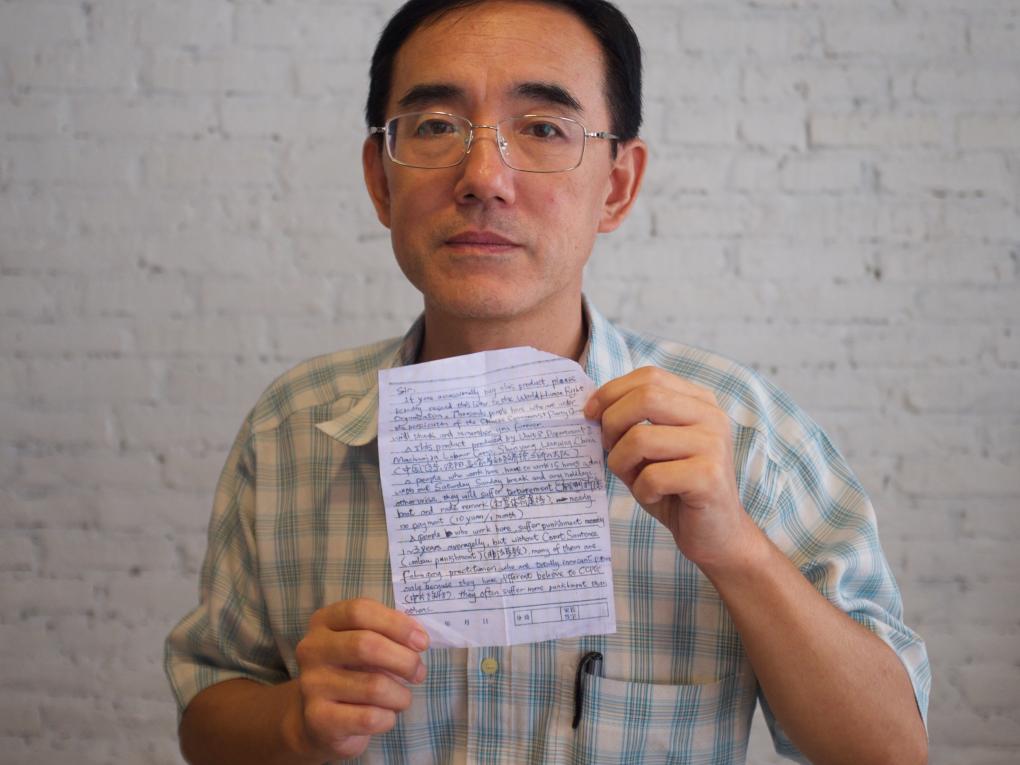 Sir:
If you occasionally buy this product, please
kindly resend this letter to the World Human Right
Organization. Thousands people here who are under
the persicution of the Chinese Communist Party
will thank and remember you forever.
This product produced by Unit 8, Department 2,
Labour Camp, Shen yang, Liaoning, China
(中国,辽宁,沈阳
people who work here, have to work 15 hours a day
with out Saturday, Sunday break and any holidays,
other wise, they will suffer
beat and rude remark nealy
no payment (10 yuan/1 month)
people who work here, suffer punishment
1~3 years averagelly, but without Court Sentence
(unlaw punishment) many of them are
Falun gong practitioner, who are totally innocent people
only because they have different believe to CCPG
they often suffer more punishment than
others.
年 月 日